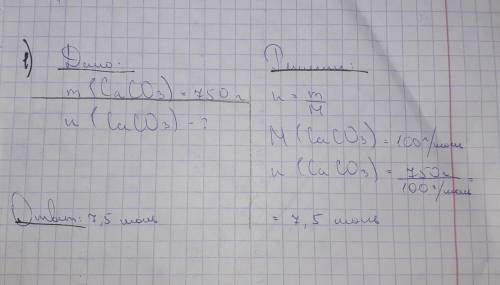 1) Дано:
m (CaCO3) = 750 г
n (CaCO3) - ?
Ответ: 7,5 моль
Решение:
n = m/M
M (CaCO3) = 100 г/моль
n (CaCO3) = 750 г / 100 г/моль =
= 7,5 моль